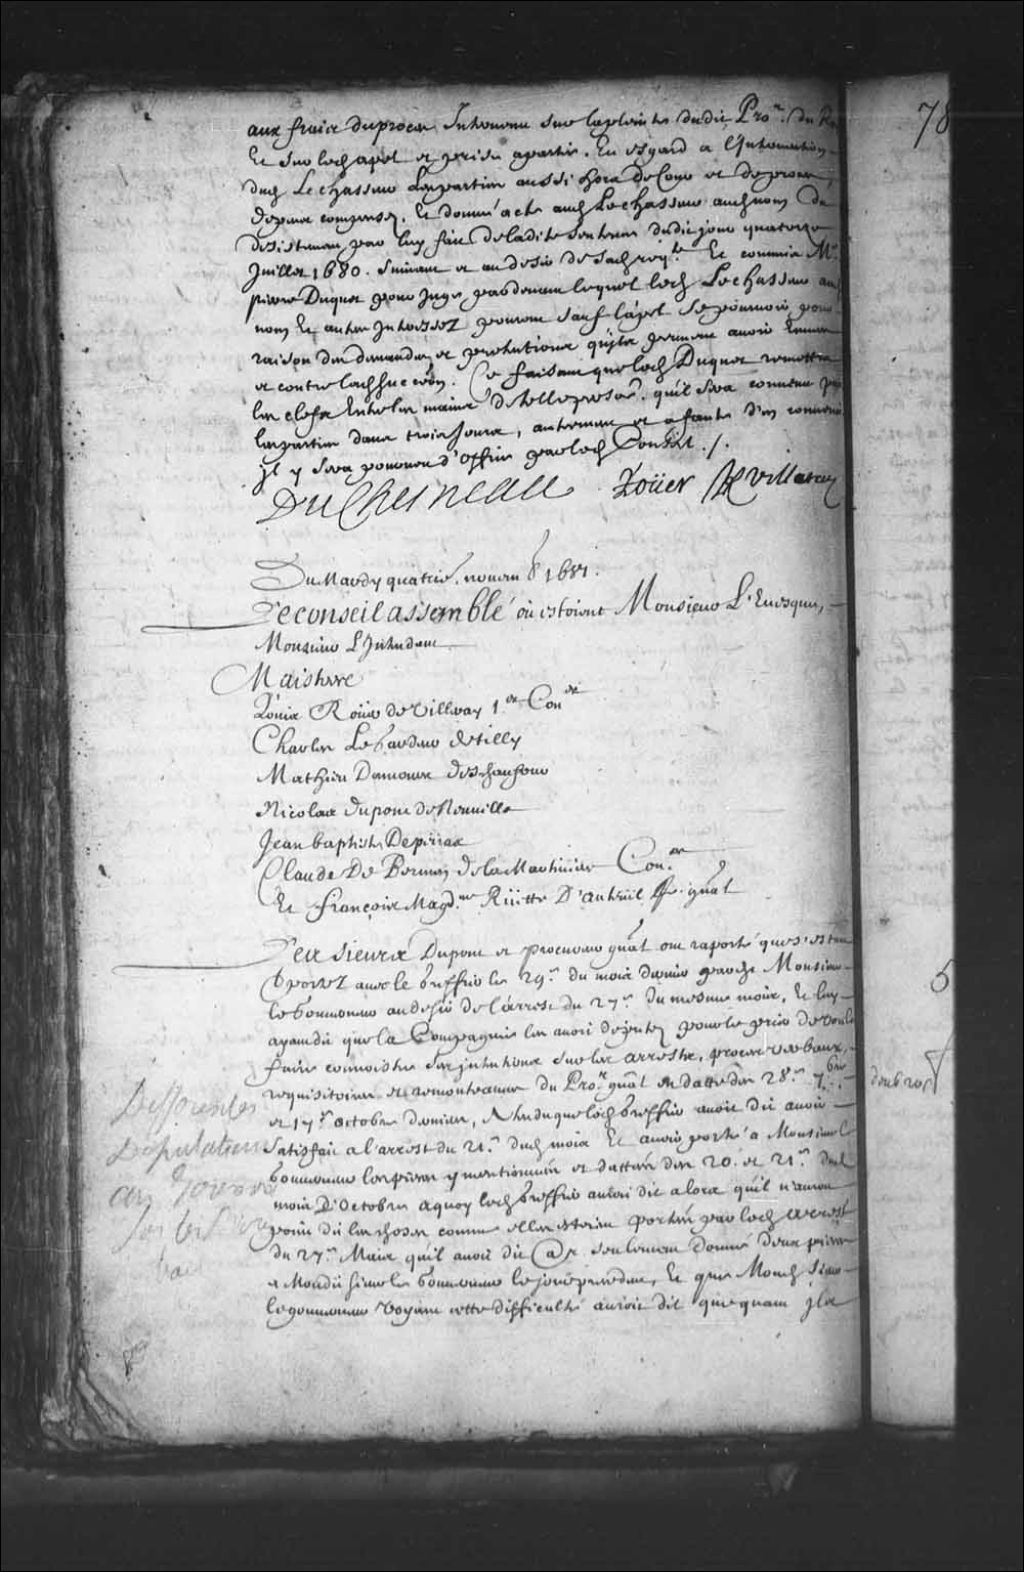 aux fraix du proces Intervenu sur la plainte dudit Pro.r du Roy
Et sur led. apel et prise a partie. Eu esgard a l'Intervention
dud. Le chasseur les parties aussi hors de Cour et de procez,
despens compensez. Et donné acte aud. Le chasseur aud. nom du
desistement par luy fait de ladite sentence dudit jour quatorze
Juillet 1680. suivant et au desir de sad. req.te Et commis M.e
pierre Duquet pour Juge pardevant lequel led. Le chasseur aud.
nom Et autres Interessez pourront sauf l'apel se pourvoir pour
raison des demandes et pretentions qu'ils peuvent avoir Envers
et contre lad. succ.ion. Ce faisant que led. Duquet remettra
les clefs Entre les mains de telle perso.e qu'il sera convenu par
les parties dans trois Jours, autrement et a faute d'en convenir
jl y sera pourveu d'office par led. Con.er ./.
DuChesneau Roüer de Villeray
Du Mardy quatrie. novem.e 1681.
Le conseil assemblé où estoient Monsieur L'Evesque,
Monsieur L'Jntendant
Maistres
Loüis Roüer de Villeray 1.er Con.er
Charles Le gardeur de tilly
Mathieu Damours deschaufour
Nicolas dupont de Neuville
Jean baptiste Depeiras
Claude De Bermen de la Martiniere Con.ers
Et François Magd.ne Rüette D'auteüil P.r gñal
Les sieurs Dupont et procureur gñal ont raporté que s'estant
tportez avec le greffier le 29.e du mois dernier par chez Monsieur
le Gouverneur au desir de l'arrest du 27.e du mesme mois, Et luy
ayant dit que la Compagnie les avoit deputez pour le prier de vouloir
faire connoistre ses jntentions sur les arrests, procez verbaux,
requisitoires et remontrances du Pro.r gñal en datte des 28.e 7.bre
et 17.e octobre derniers, Attendu que led. greffier avoit dit avoir
satisfait a l'arrest du 21.e dud. mois Et avoir porté a Monsieur le
Gouverneur les pieces y mentionnées et dattées des 20. et 21.e dud.
mois D'Octobre a quoy led. greffier auroit dit alors qu'il n'avoit
point dit les choses comme elles estoient portées par led. arrest
du 27.e Mais qu'il avoit dit avoir seulement donné deux pieces
a Mondit sieur le Gouverneur le jour precedent, Et que Mond. sieur
le gouverneur voyant cette difficulté auroit dit que quand jls
78
5